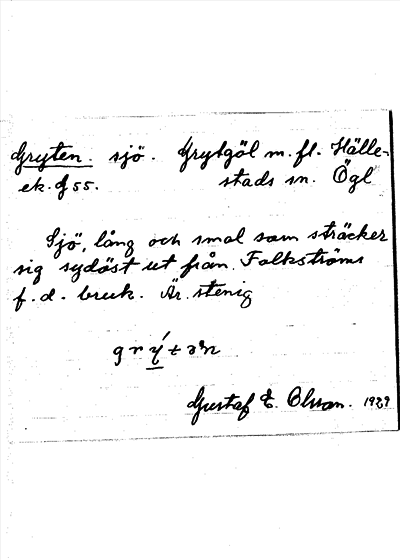 Gryten. sjö. Grytgöl m. fl. Hälle-
ek. G 55. stads sn. Ögl
Sjö, lång och smal som sträcker
sig sydöst ut från Folkströms
f. d. bruk. Är stenig
Gustaf E. Olsson. 1929